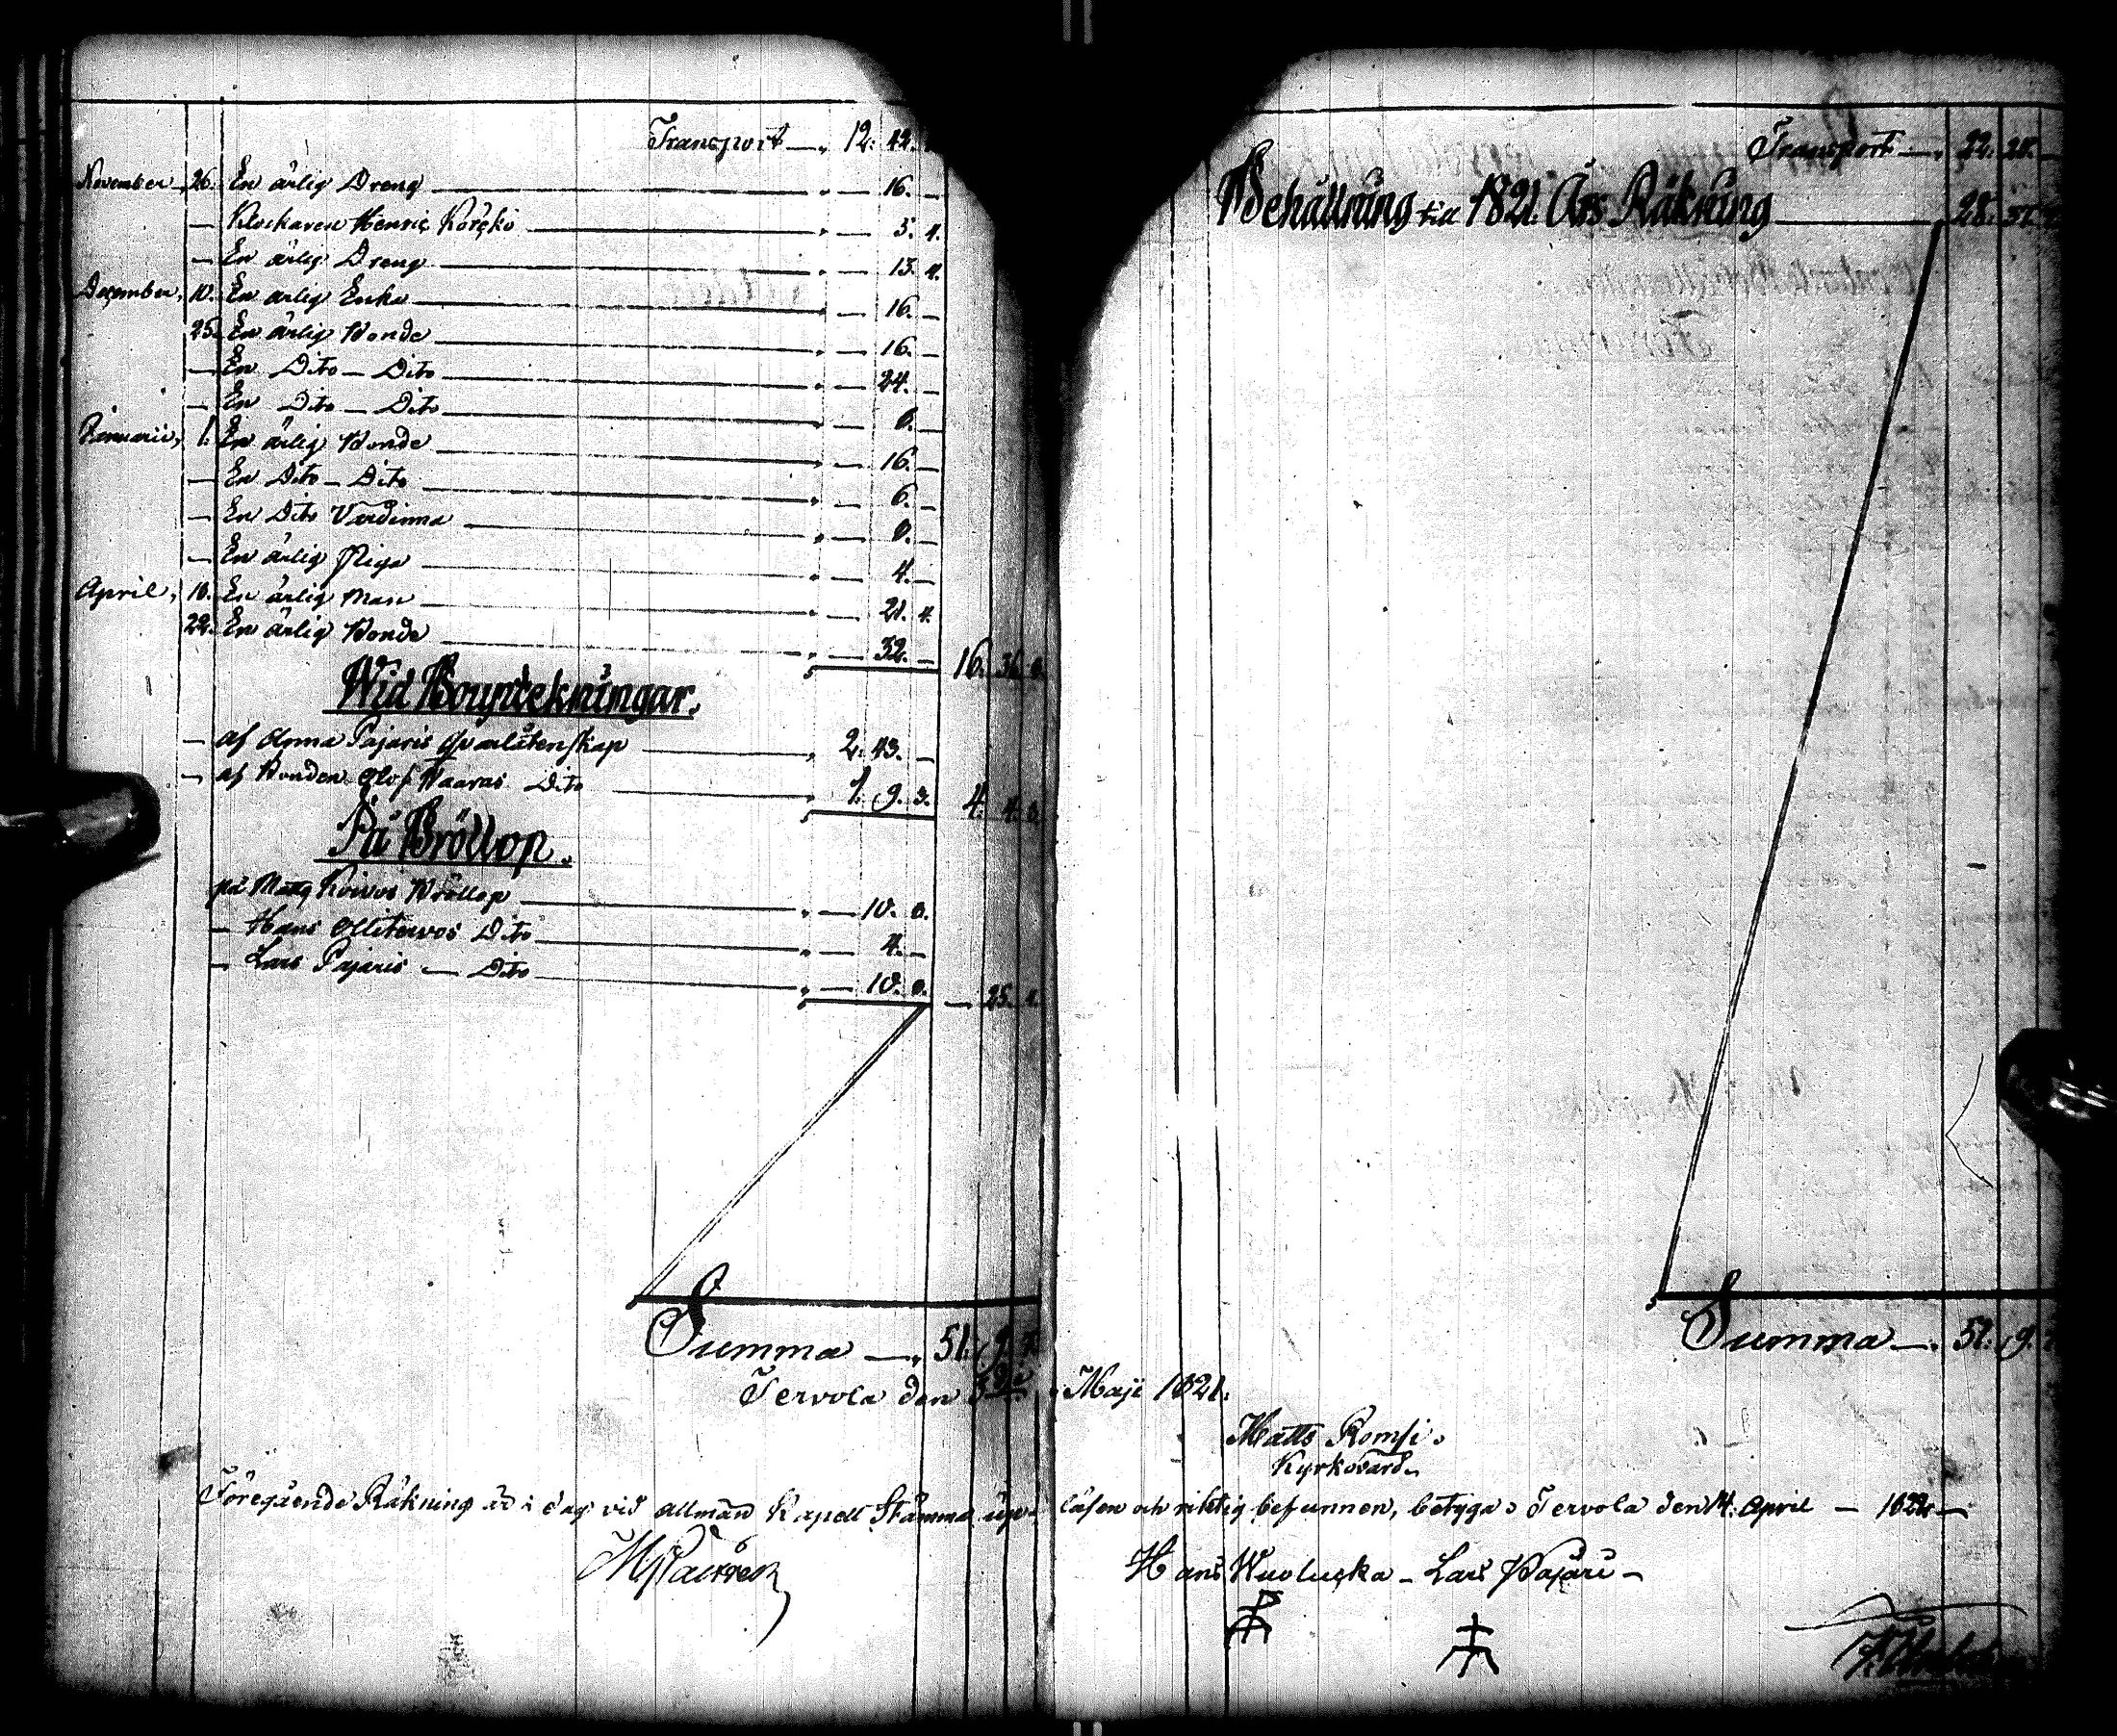 Transport — 12. 42.
November 26. En ärlig Dreng — 16. —
— Klockaren Henric Körckö — 5. 4.
— En ärlig Dreng — 13. 4.
December, 10. En ärlig Enka — 16. —
25. En ärlig Bonde — 16. —
— En Dito — Dito — 24. —
— En Dito — Dito — 6. —
Januarii, 1. En ärlig Bonde — 16. —
— En Dito — Dito — 6. —
— En Dito Värdinna —
— En ärlig Piga — 4. —
April, En ärlig Man — 21. 4.
22. En ärlig Bonde — 32. — 16. 36.
Wid Boupteckningar.
— af Anna Pajaris qvarlåtenskap — 2. 43. —
— af Bonden Olof Waaras Dito — 1. 9. 4. 4.
På Bröllop.
på Koivos Bröllop — 10.
— Hans Ollitervos Dito — 4. —
— Lars Pajaris — Dito — 10. — 25.
Summa — 51. 9.
Transport — 22. 28. —
Behållning till 1821. Års Räkning — 28.
Summa — 51. 9.
Tervola den Maji 1821.
Matts Romsi.
Kyrkovärd.
Föregående Räkning är i dag vid allmän Kapell Stämma up- läsen och riktig befunnen, betyga. Tervola den 14. April — 1822 —
Hans Wuoluska — Lars Pajari —